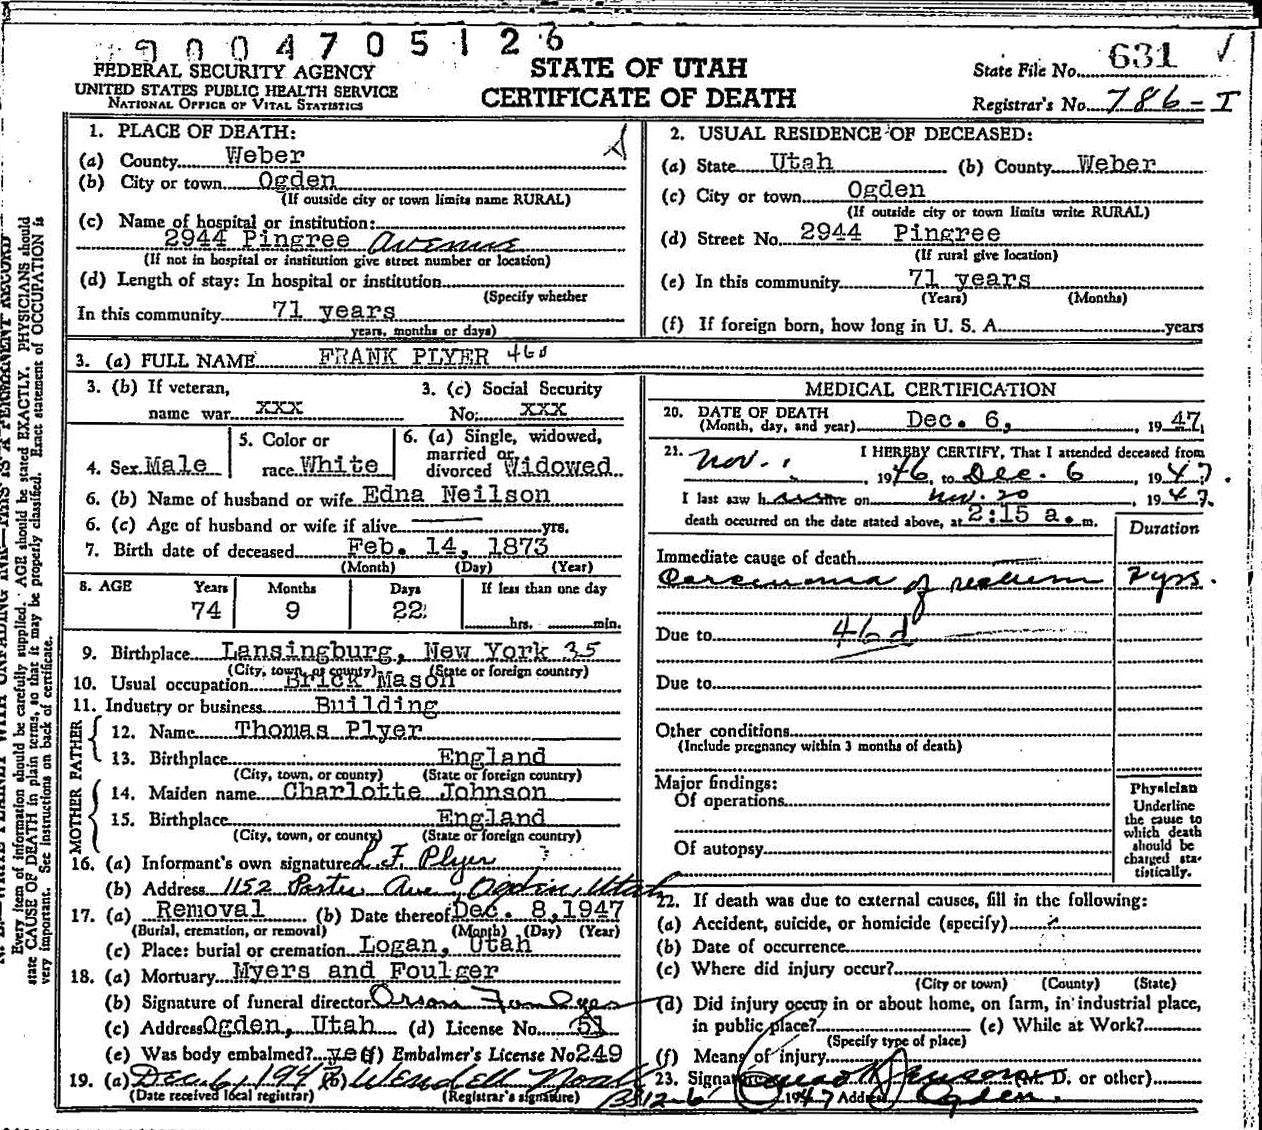 9004705126
FEDERAL SECURITY AGENCY
UNITED STATES PUBLIC HEALTH SERVICE
NATIONAL OFFICE OF VITAL STATISTICS
STATE OF UTAH
CERTIFICATE OF DEATH
State File No. 631
Registrar's No. 786-I
1. PLACE OF DEATH:
(a) County Weber
(b) City or town Ogden
(If outside city or town limits name RURAL)
(c) Name of hospital or institution:
2944 Pingree Avenue
(If not in hospital or institution give street number or location)
(d) Length of stay: In hospital or institution
(Specify whether
In this community 71 years
years, months or days)
2. USUAL RESIDENCE OF DECEASED:
(a) State Utah (b) County Weber
(c) City or town Ogden
(If outside city or town limits write RURAL)
(d) Street No. 2944 Pingree
(If rural give location)
(e) In this community 71 years
(Years) (Months)
(f) If foreign born, how long in U. S. A. years
3. (a) FULL NAME FRANK PLYER 46d
3. (b) If veteran,
name war xxx
3. (c) Social Security
No: xxx
4. Sex Male
5. Color or
race White
6. (a) Single, widowed,
married or
divorced Widowed
6. (b) Name of husband or wife Edna Neilson
6. (c) Age of husband or wife if alive yrs.
7. Birth date of deceased Feb. 14, 1873
(Month) (Day) (Year)
8. AGE Years Months Days If less than one day
74 9 22 hrs. min.
9. Birthplace Lansingburg, New York 35
(City, town, or county) (State or foreign country)
10. Usual occupation Brick Mason
11. Industry or business Building
FATHER
12. Name Thomas Plyer
13. Birthplace England
(City, town, or county) (State or foreign country)
MOTHER
14. Maiden name Charlotte Johnson
15. Birthplace England
(City, town, or county) (State or foreign country)
16. (a) Informant's own signature L. F. Plyer
(b) Address 1152 Porter Ave Ogden, Utah
17. (a) Removal (b) Date thereof Dec. 8, 1947
(Burial, cremation, or removal) (Month) (Day) (Year)
(c) Place: burial or cremation Logan, Utah
18. (a) Mortuary Myers and Foulger
(b) Signature of funeral director Orson
(c) Address Ogden, Utah (d) License No. 51
(e) Was body embalmed? yes (f) Embalmer's License No 249
19. (a) Dec. 6, 1947 (b) Wendell
(Date received local registrar) (Registrar's signature)
MEDICAL CERTIFICATION
20. DATE OF DEATH
(Month, day, and year) Dec. 6, , 19 47
21. I HEREBY CERTIFY, That I attended deceased from
Nov. , 1946, to Dec. 6 , 1947.
I last saw h alive on Nov. 20 , 1947.
death occurred on the date stated above, at 2:15 a. m.
Duration
Immediate cause of death
Carcinoma of rectum 2 yrs.
Due to 46d
Due to
Other conditions
(Include pregnancy within 3 months of death)
Major findings:
Of operations
Of autopsy
Physician
Underline
the cause to
which death
should be
charged sta-
tistically.
22. If death was due to external causes, fill in the following:
(a) Accident, suicide, or homicide (specify)
(b) Date of occurrence
(c) Where did injury occur?
(City or town) (County) (State)
(d) Did injury occur in or about home, on farm, in industrial place,
in public place? (e) While at Work?
(Specify type of place)
(f) Means of injury
23. Signature (M. D. or other)
12-6 1947 Address Ogden.
Every item of information should be carefully supplied. AGE should be stated EXACTLY. PHYSICIANS should
state CAUSE OF DEATH in plain terms, so that it may be properly classified. Exact statement of OCCUPATION is
very important. See instructions on back of certificate.